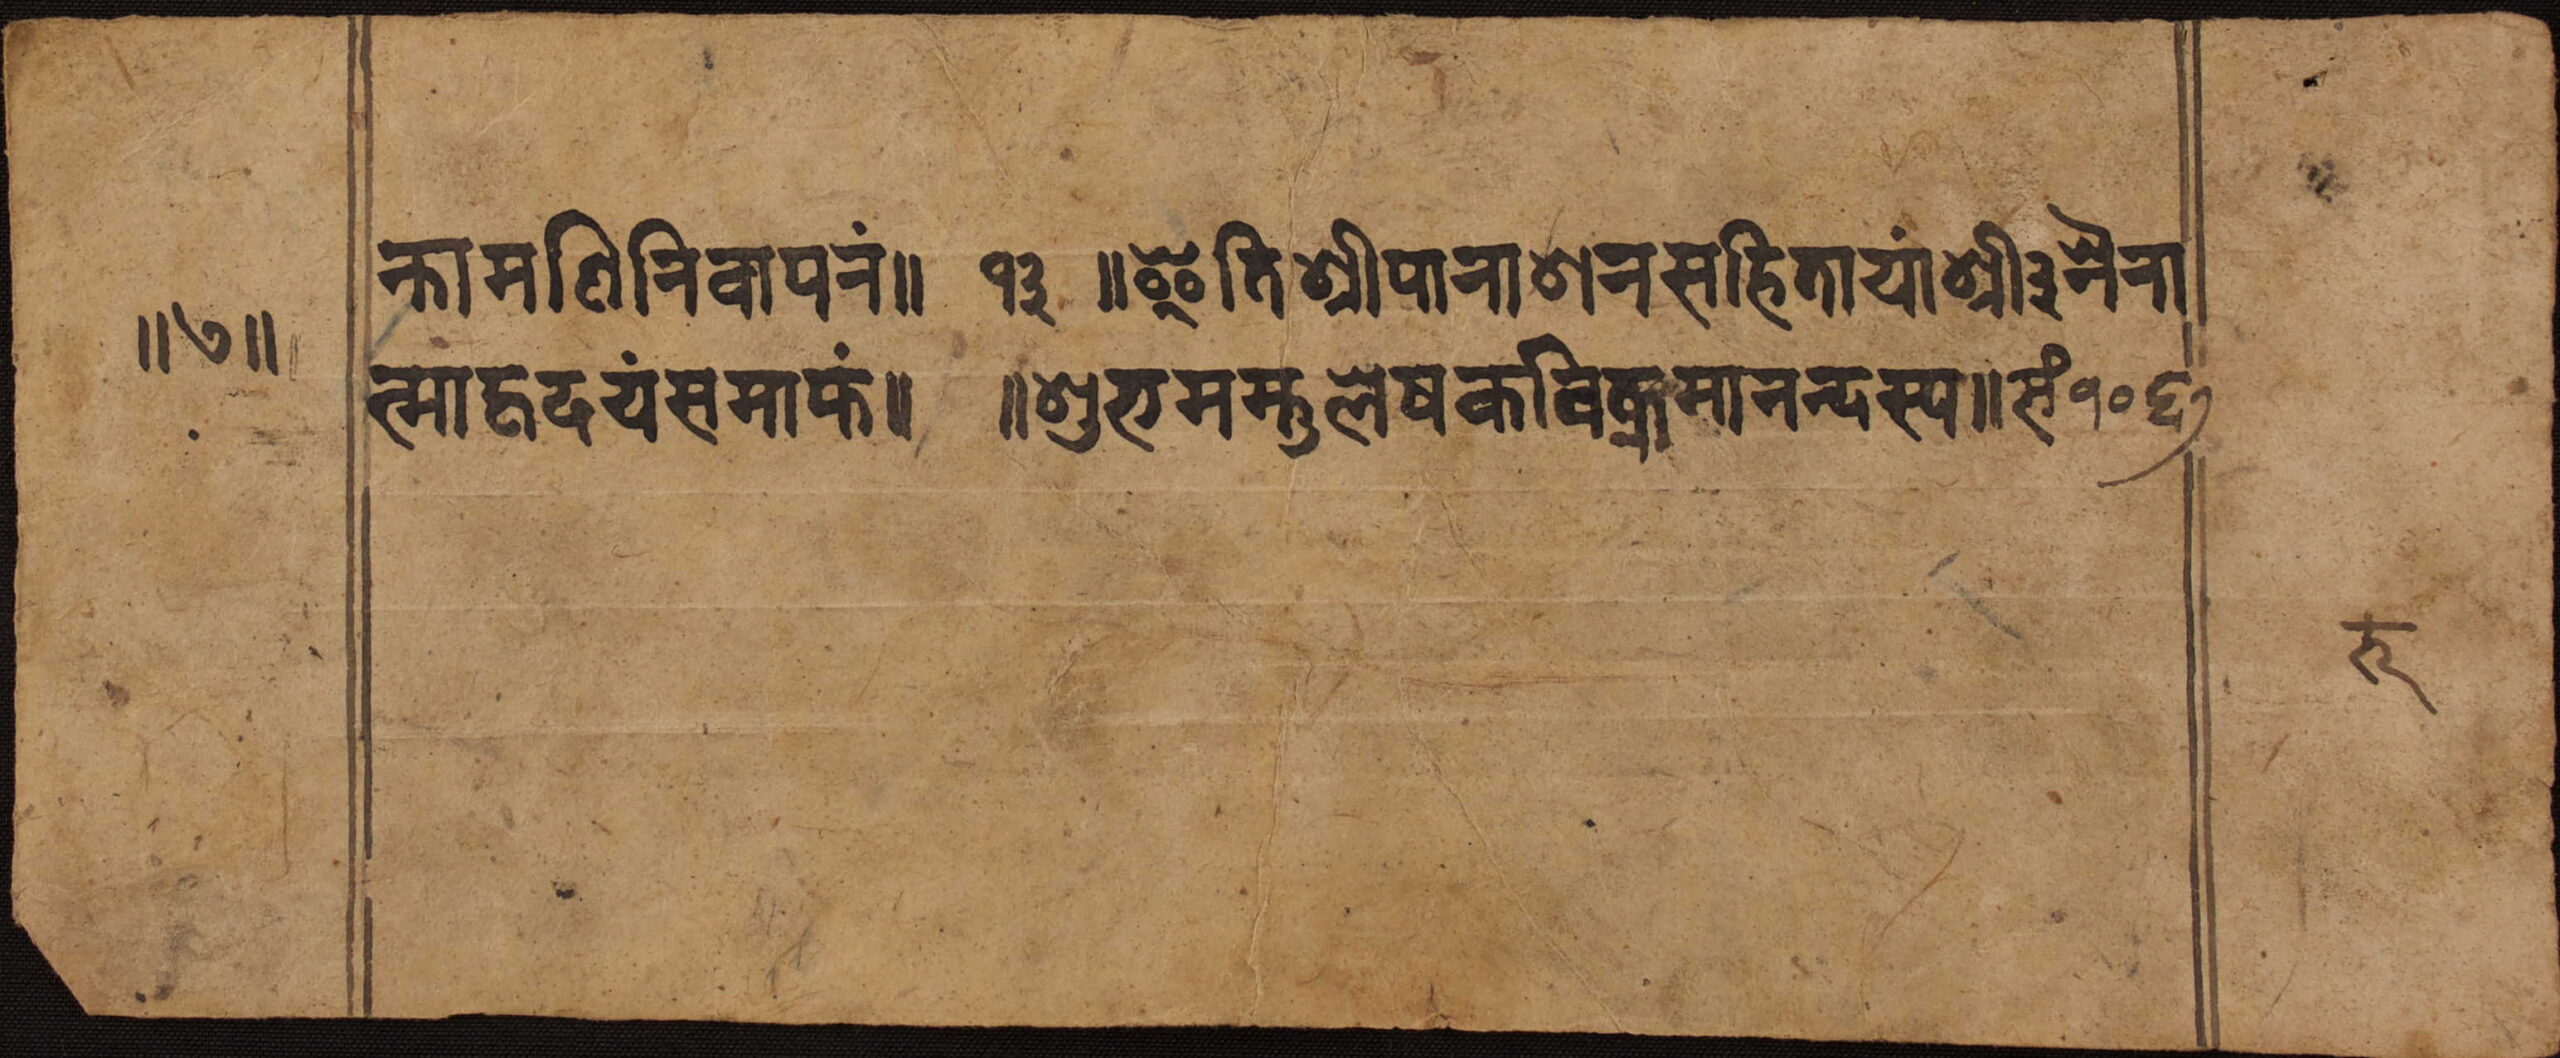 न्तामणिनिवापनं॥ १३ ॥इति श्रीपानाशनसहितायां श्री३नैना
॥७॥
त्माहृदयं समाप्तं॥ ॥शुभमस्तु लेषक विक्रमानन्दस्य॥ सं १०६